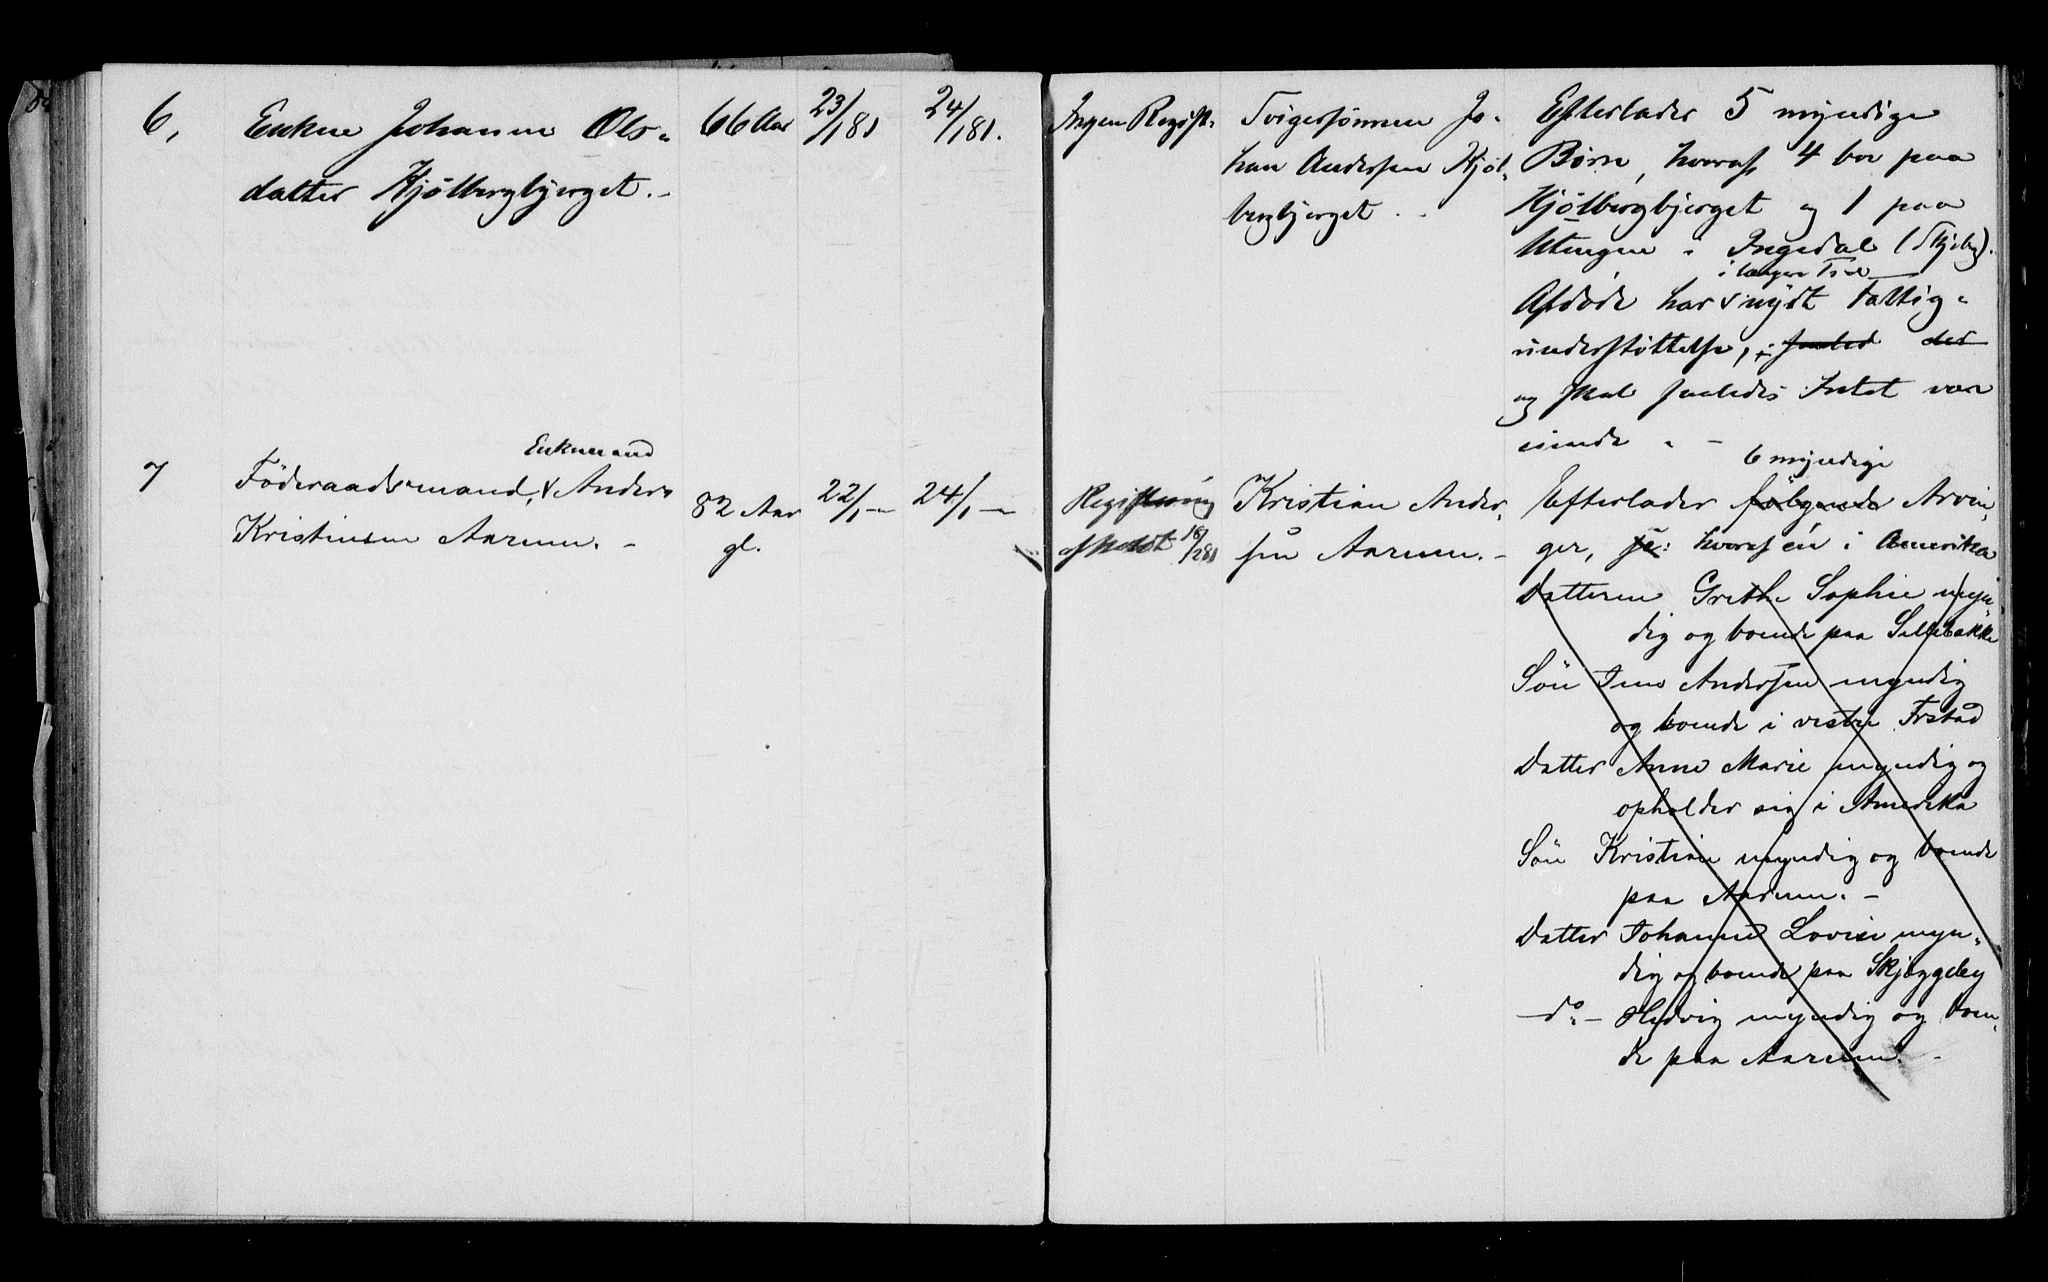 6, Enken Johanne Ols-
datter Kjölbergbjerget. -
66 Aar
23/1 81
24/1 81.
Ingen Registr.
Svigersønnen Jo-
han Andersen Kjöl-
bergbjerget . -
Efterlader 5 myndige
Børn, hvoraf 4 bor paa
Kjölbergbjerget og 1 paa
i Ingedal (Skjeby).
i længere Tid
Afdøde har nydt Fattig-
understøttelse, saaled der
og skal saaledes Intet være
eiende. -
7
Enkemand
Föderaadsmand, Anders
Kristiansen Aarum. -
82 Aar
gl.
22/1 -
24/1 -
Registrering
afholdt 18/2 81
Kristian Ander-
sen Aarum. -
6 myndige
Efterlader følgende Arvin-
ger, hvoraf én i Amerika
Datteren Grethe Sophie myn-
dig og boende paa Sellebakke
Sön Jens Andersen myndig
og boende i vestre Frstad
Datter Anne Marie myndig og
opholder sig i Amerika
Sön Kristian myndig og boende
paa Aarum. -
Datter Johanne Lovise myn-
dig og boende paa Skjæggeby
- do - Hedvig myndig og boen-
de paa Aarum. -